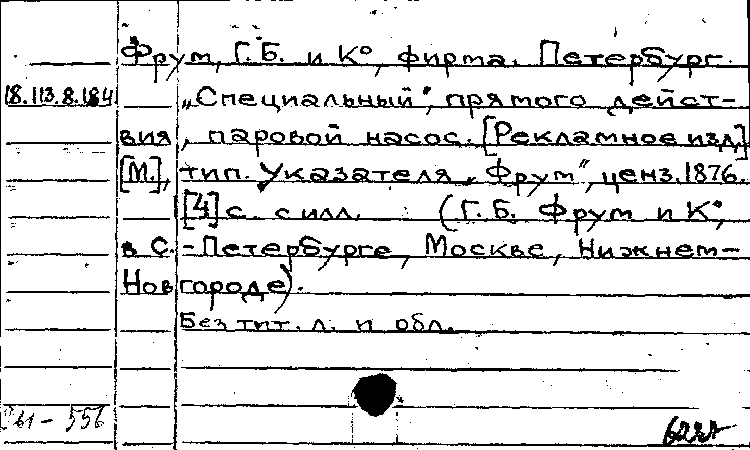 Фрум, Г.Б. и К°, фирма. Петербург.
18.113.8.184
„Специальный“, прямого дейст-
вия, паровой насос. [Рекламное изд.]
[М.], тип. Указателя „Фрум“, ценз. 1876.
[4] с. с илл. (Г.Б. Фрум и К°,
в С.-Петербурге, Москве, Нижнем-
Новгороде).
Без тит. л. и обл.
61-556